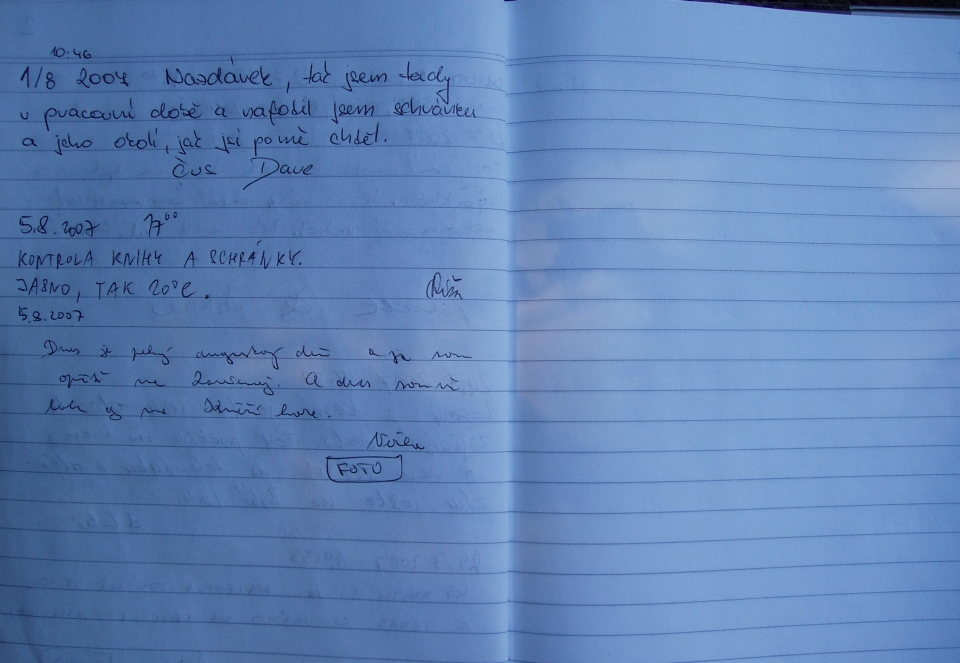 10.46
1/8 2007 Nazdávek, tak jsem tady
v pracovní době a nafotil jsem schránku
a jeho okolí, jak jsi po mě chtěl.
Čus Dave
5.8.2007 17⁰⁰
KONTROLA KNIHY A SCHRÁNKY.
JASNO, TAK 20°C.
5.8.2007
Dnes je pekný augustový deň a ja som
opäť na. A dnes som
bol aj na hore.
FOTO